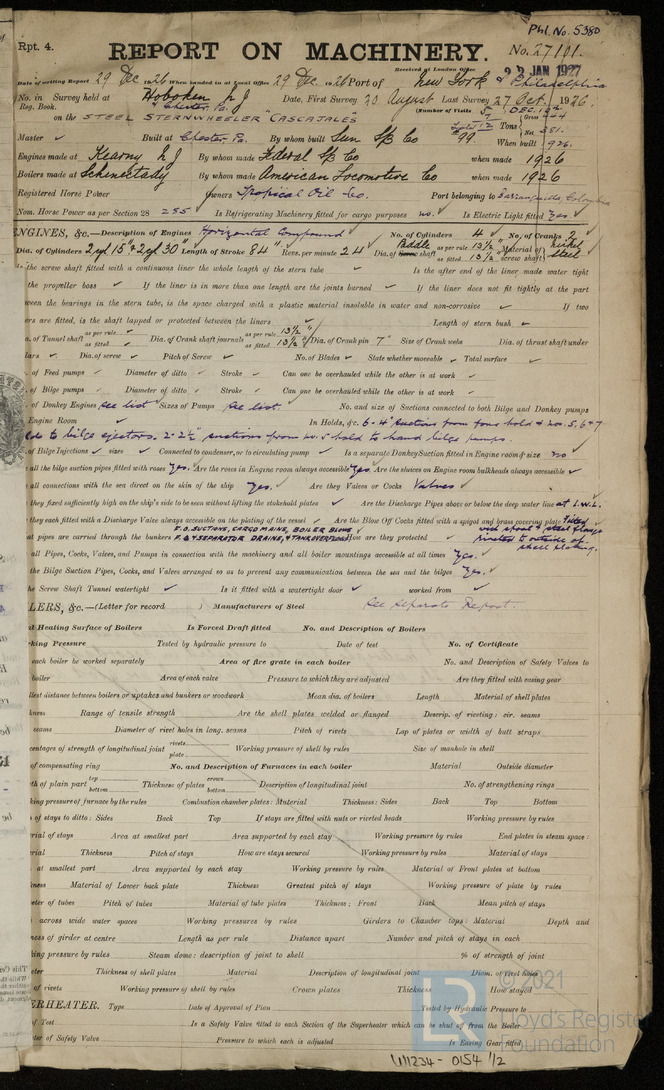 Phl. No. 5380
Rpt. 4.
REPORT ON MACHINERY. No. 27101.
Received at London Office 22 JAN 1927
Date of writing Report 29 Dec 1926 When handed in at Local Office 29 Dec. 1926 Port of New York & Philadelphia
No. in Reg. Book. Survey held at Hoboken N J Chester, Pa. Date, First Survey 23 August Last Survey 27 Oct. 1926.
(Number of Visits
on the STEEL STERNWHEELER "CASCAJALES" Tons
Master ✓ Built at Chester, Pa. By whom built Sun S/B Co When built 1926.
Engines made at Kearny N J By whom made Federal S/B Co when made 1926
Boilers made at Schenectady By whom made American Locomotive Co when made 1926
Registered Horse Power Owners Tropical Oil Co. Port belonging to Barranquilla Colombia
Nom. Horse Power as per Section 28 285 Is Refrigerating Machinery fitted for cargo purposes no. Is Electric Light fitted Yes
ENGINES, &c.—Description of Engines Horizontal Compound No. of Cylinders 4 No. of Cranks 2
Dia. of Cylinders 2 cyl 15" & 2 cyl 30" Length of Stroke 84" Revs. per minute 24 Dia. of Paddle shaft as per rule 13½" as fitted 13½" Material of screw shaft nickel steel
the screw shaft fitted with a continuous liner the whole length of the stern tube ✓ Is the after end of the liner made water tight
the propeller boss ✓ If the liner is in more than one length are the joints burned ✓ If the liner does not fit tightly at the part
ween the bearings in the stern tube, is the space charged with a plastic material insoluble in water and non-corrosive ✓ If two
ers are fitted, is the shaft lapped or protected between the liners ✓ Length of stern bush ✓
a. of Tunnel shaft as per rule ✓ as fitted ✓ Dia. of Crank shaft journals as per rule 13½" as fitted 13½" Dia. of Crank pin 7" Size of Crank webs Dia. of thrust shaft under
lars ✓ Dia. of screw ✓ Pitch of Screw ✓ No. of Blades ✓ State whether moveable ✓ Total surface ✓
of Feed pumps ✓ Diameter of ditto ✓ Stroke ✓ Can one be overhauled while the other is at work ✓
of Bilge pumps ✓ Diameter of ditto ✓ Stroke ✓ Can one be overhauled while the other is at work ✓
of Donkey Engines See list Sizes of Pumps See list. No. and size of Suctions connected to both Bilge and Donkey pumps
Engine Room ✓ In Holds, &c. 6-4" suctions from four hold & nos. 5, 6 & 7
lds to bilge ejectors. 2-2½" suctions from no. 1 hold to hand bilge pumps.
of Bilge Injections ✓ sizes ✓ Connected to condenser, or to circulating pump ✓ Is a separate Donkey Suction fitted in Engine room & size no
all the bilge suction pipes fitted with roses Yes. Are the roses in Engine room always accessible Yes. Are the sluices on Engine room bulkheads always accessible ✓
all connections with the sea direct on the skin of the ship Yes. Are they Valves or Cocks Valves
they fixed sufficiently high on the ship's side to be seen without lifting the stokehold plates ✓ Are the Discharge Pipes above or below the deep water line at I.W.L.
they each fitted with a Discharge Valve always accessible on the plating of the vessel ✓ Are the Blow Off Cocks fitted with a spigot and brass covering plate Fitted
at pipes are carried through the bunkers F.O. SUCTIONS, CARGO MAINS, BOILER BLOWS F.B. & SEPARATOR DRAINS, & TANK OVERFLOWS How are they protected ✓ with spool & steel flange riveted to outside of shell plating.
all Pipes, Cocks, Valves, and Pumps in connection with the machinery and all boiler mountings accessible at all times Yes.
the Bilge Suction Pipes, Cocks, and Valves arranged so as to prevent any communication between the sea and the bilges Yes.
he Screw Shaft Tunnel watertight ✓ Is it fitted with a watertight door ✓ worked from ✓
LERS, &c.—(Letter for record ) Manufacturers of Steel See separate Report.
l Heating Surface of Boilers Is Forced Draft fitted No. and Description of Boilers
king Pressure Tested by hydraulic pressure to Date of test No. of Certificate
each boiler be worked separately Area of fire grate in each boiler No. and Description of Safety Valves to
boiler Area of each valve Pressure to which they are adjusted Are they fitted with easing gear
llest distance between boilers or uptakes and bunkers or woodwork Mean dia. of boilers Length Material of shell plates
kness Range of tensile strength Are the shell plates welded or flanged Descrip. of riveting: cir. seams
seams Diameter of rivet holes in long. seams Pitch of rivets Lap of plates or width of butt straps
centages of strength of longitudinal joint rivets plate Working pressure of shell by rules Size of manhole in shell
of compensating ring No. and Description of Furnaces in each boiler Material Outside diameter
th of plain part top bottom Thickness of plates crown bottom Description of longitudinal joint No. of strengthening rings
king pressure of furnace by the rules Combustion chamber plates: Material Thickness: Sides Back Top Bottom
of stays to ditto: Sides Back Top If stays are fitted with nuts or riveted heads Working pressure by rules
rial of stays Area at smallest part Area supported by each stay Working pressure by rules End plates in steam space:
rial Thickness Pitch of stays How are stays secured Working pressure by rules Material of stays
at smallest part Area supported by each stay Working pressure by rules Material of Front plates at bottom
kness Material of Lower back plate Thickness Greatest pitch of stays Working pressure of plate by rules
eter of tubes Pitch of tubes Material of tube plates Thickness: Front Back Mean pitch of stays
across wide water spaces Working pressures by rules Girders to Chamber tops: Material Depth and
ness of girder at centre Length as per rule Distance apart Number and pitch of stays in each
king pressure by rules Steam dome: description of joint to shell % of strength of joint
eter Thickness of shell plates Material Description of longitudinal joint Diam. of rivet holes
of rivets Working pressure of shell by rules Crown plates Thickness How stayed
ERHEATER. Type Date of Approval of Plan Tested by Hydraulic Pressure to
of Test Is a Safety Valve fitted to each Section of the Superheater which can be shut off from the Boiler
ter of Safety Valve Pressure to which each is adjusted Is Easing Gear fitted
© 2021
LR
Lloyd's Register
Foundation
W1234-0154 1/2